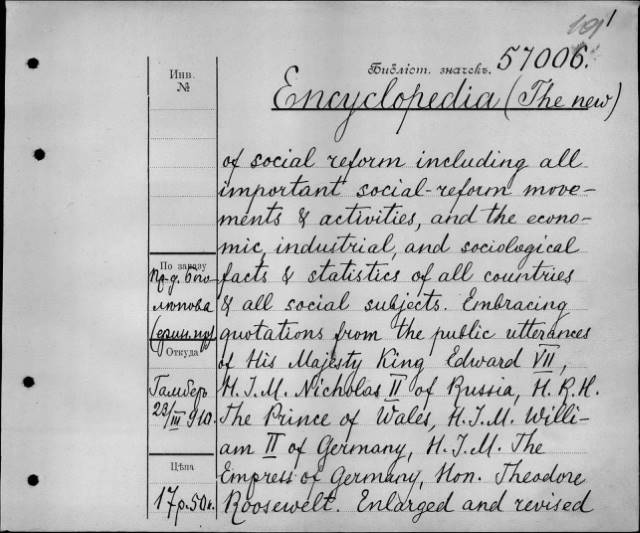 191
Библіот. значекъ. 57006.
Encyclopedia (The new)
of social reform including all
important social-reform move-
ments & activities, and the econo-
mic, industrial, and sociological
facts & statistics of all countries
& all social subjects. Embracing
quotations from the public utterances
of His Majesty King Edward VII,
H.I.M. Nicholas II of Russia, H.R.H.
The Prince of Wales, H.I.M. Willi-
am II of Germany, H.I.M. The
Empress of Germany, Hon. Theodore
Roosewelt. Enlarged and revised
Инв.
№
По заказу
Пр-д. Бого-
люпова
Откуда
Гамберъ
23/III 910.
Цѣна
17р.50к.